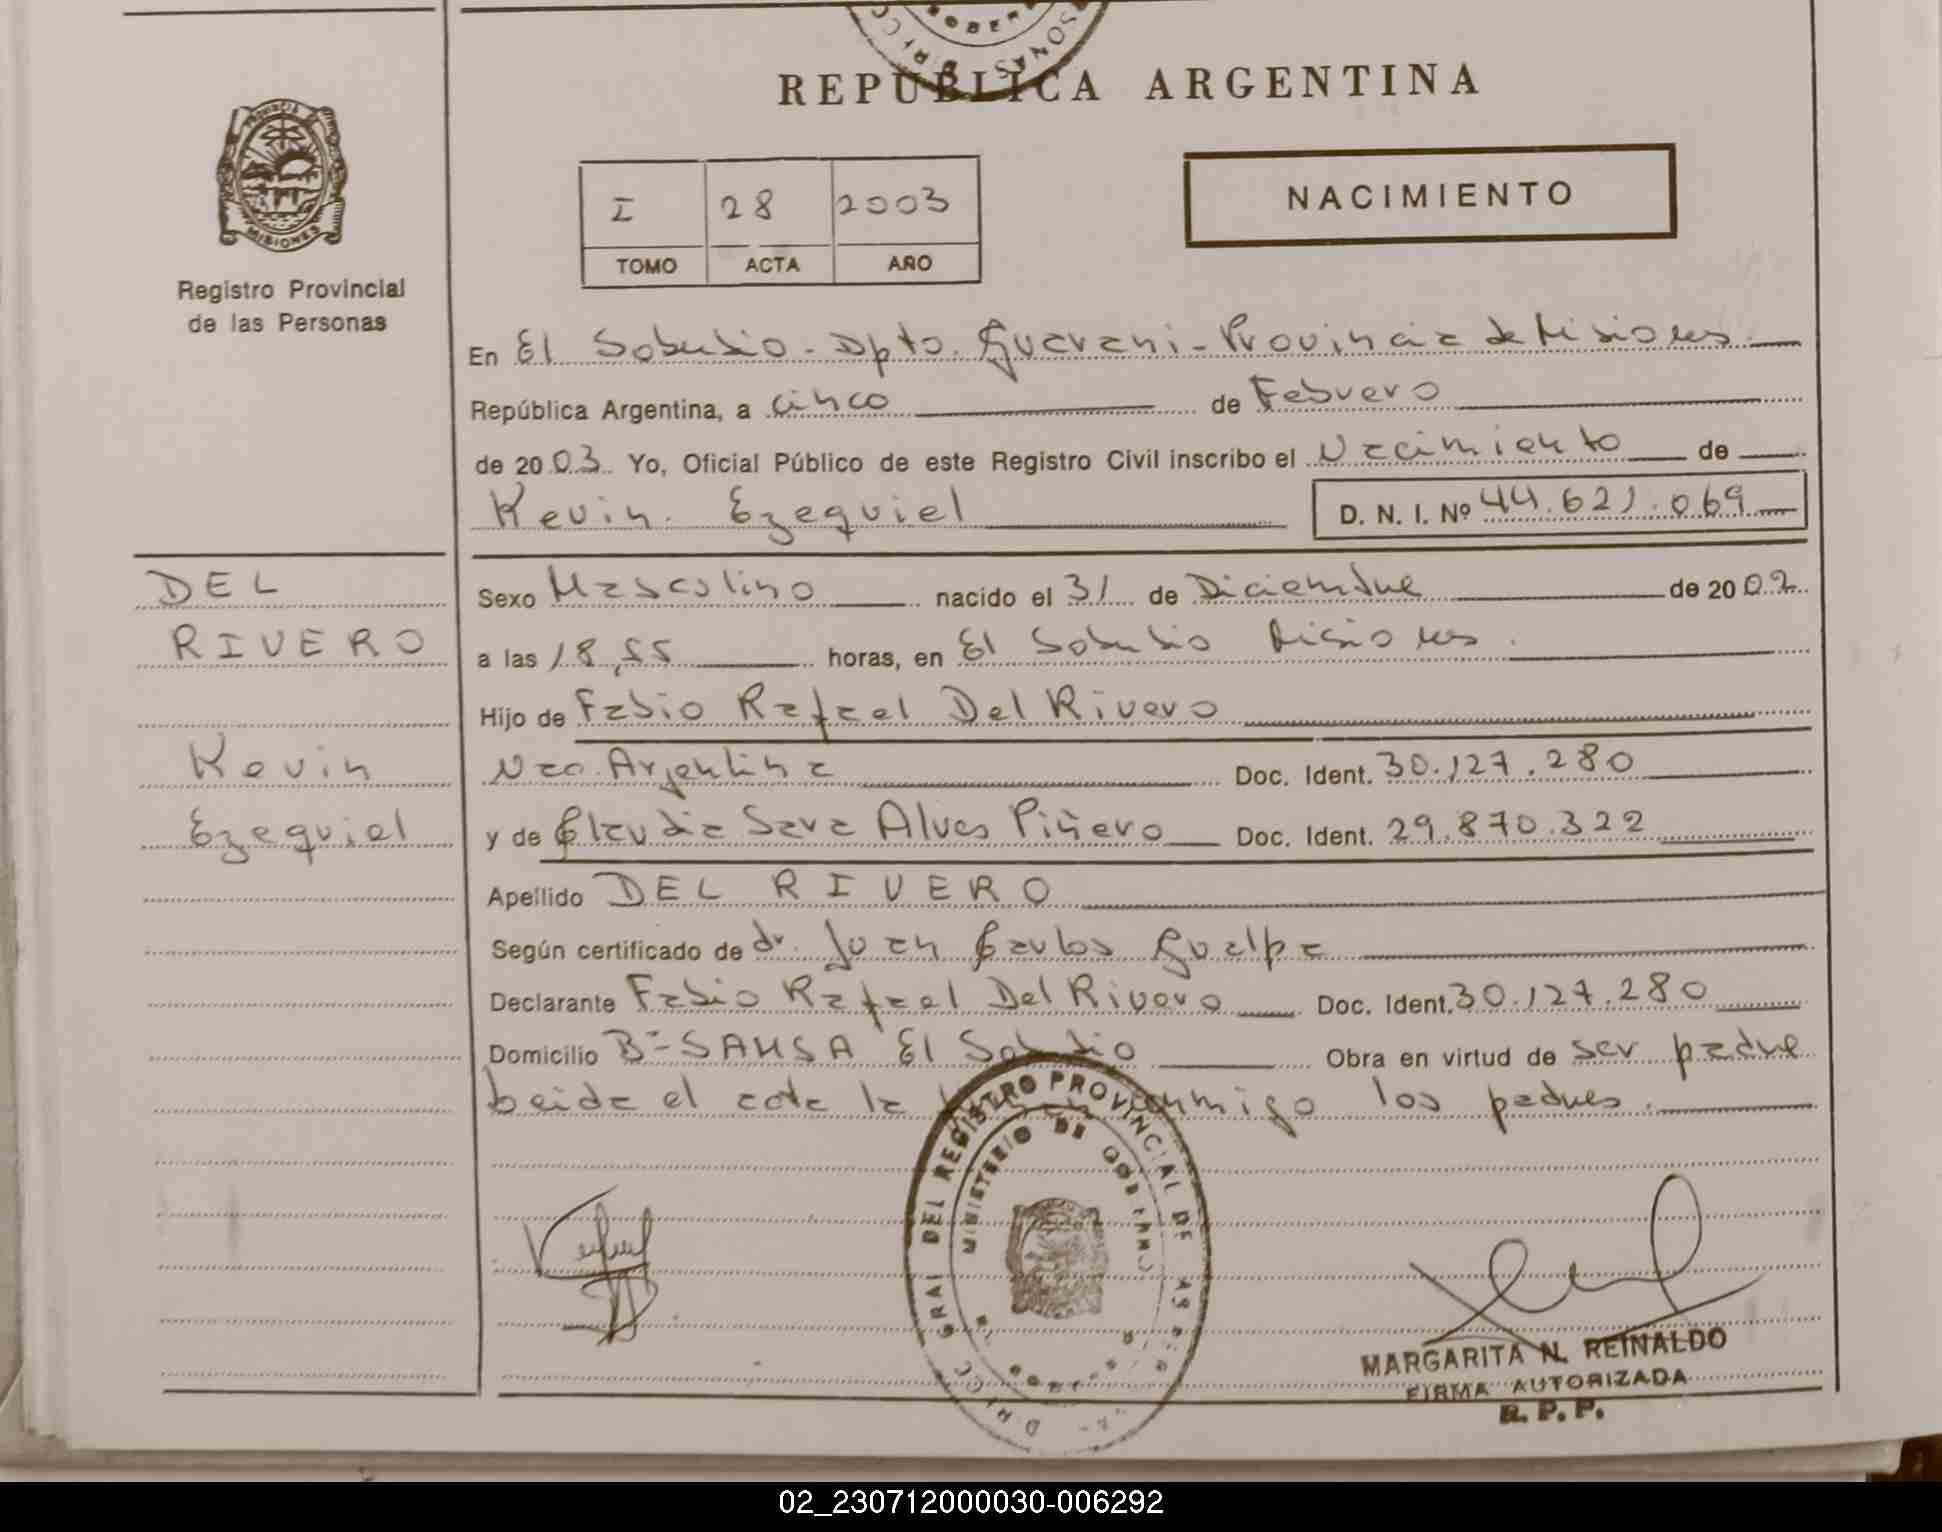 REPUBLICA ARGENTINA
PROVINCIA
MISIONES
Registro Provincial
de las Personas
I 28 2003
TOMO ACTA AÑO
NACIMIENTO
En El Soberbio - Dpto. Guarani - Provincia de Misiones
República Argentina, a cinco de Febrero
de 2003 Yo, Oficial Público de este Registro Civil inscribo el Nacimiento de
Kevin Ezequiel D. N. I. Nº 44.621.069
DEL
RIVERO
Kevin
Ezequiel
Sexo Masculino nacido el 31 de Diciembre de 2002
a las 18,55 horas, en El Soberbio Misiones.
Hijo de Fabio Rafael Del Rivero
Nac. Argentina Doc. Ident. 30.127.280
y de Claudia Sara Alves Piñero Doc. Ident. 29.870.322
Apellido DEL RIVERO
Según certificado de dr. Juan Carlos Gualpa
Declarante Fabio Rafael Del Rivero Doc. Ident. 30.127.280
Domicilio Bº SAMSA El Soberbio Obra en virtud de ser padre
leida el acta la conmigo los padres.
REGISTRO PROVINCIAL DE
MINISTERIO DE
MARGARITA N. REINALDO
FIRMA AUTORIZADA
R. P. P.
02_230712000030-006292